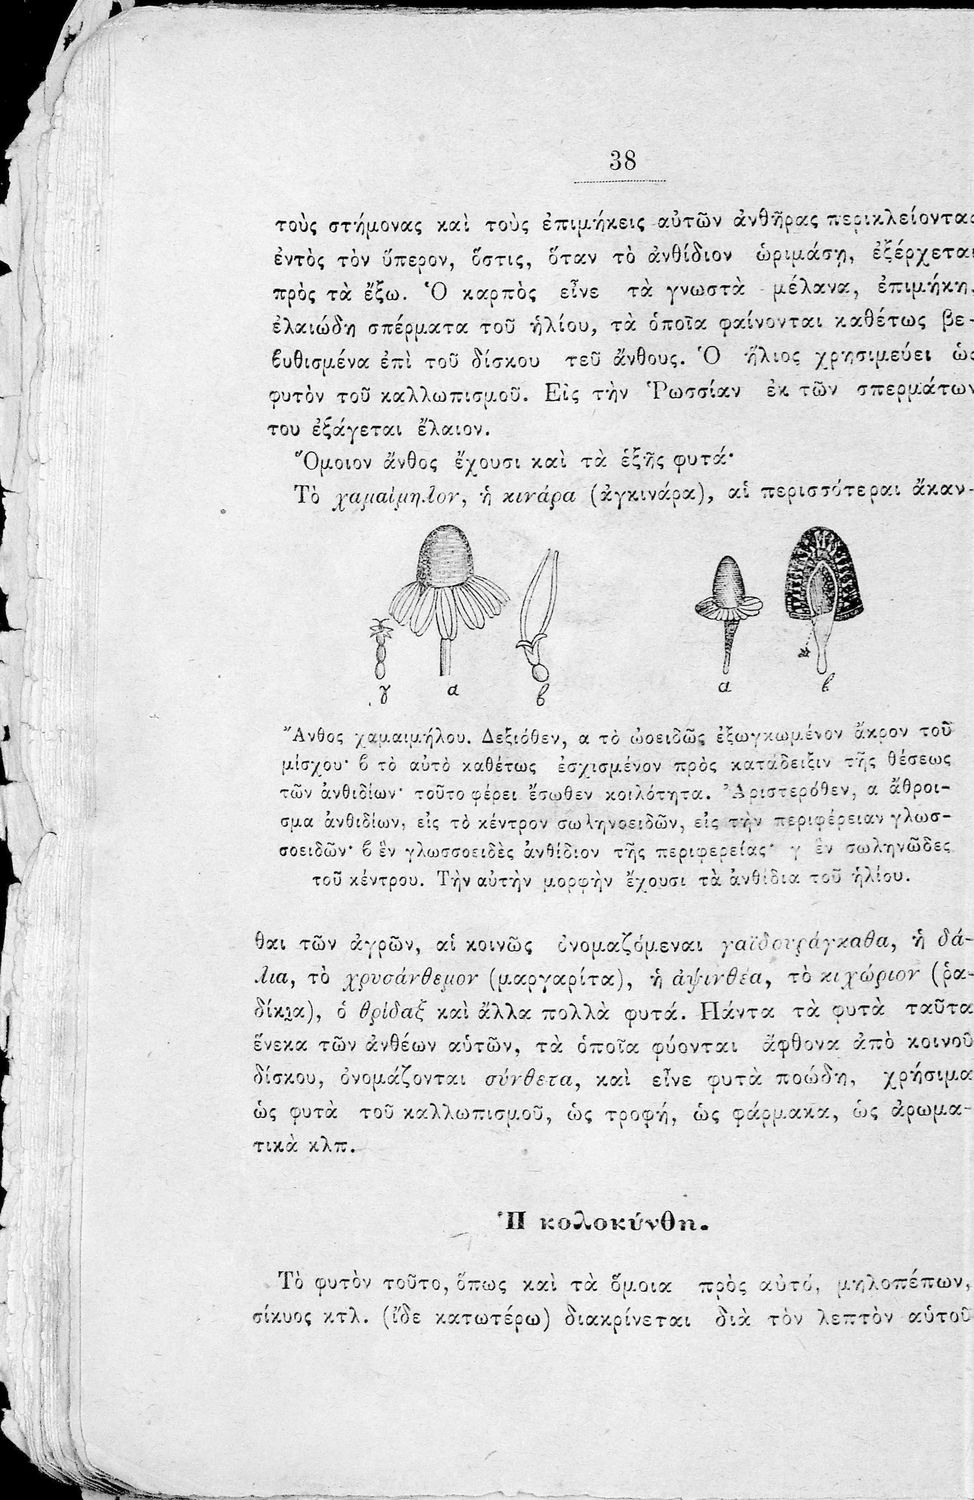 38
τοὺς στήμονας καὶ τοὺς ἐπιμήκεις αὐτῶν ἀνθῆρας περικλείοντας
ἐντὸς τὸν ὕπερον, ὅστις, ὅταν τὸ ἀνθίδιον ὡριμάσῃ, ἐξέρχεται
πρὸς τὰ ἔξω. Ὁ καρπὸς εἶνε τὰ γνωστὰ μέλανα, ἐπιμήκη,
ἐλαιώδη σπέρματα τοῦ ἡλίου, τὰ ὁποῖα φαίνονται καθέτως βε-
ϐυθισμένα ἐπὶ τοῦ δίσκου τεῦ ἄνθους. Ὁ ἥλιος χρησιμεύει ὡς
φυτὸν τοῦ καλλωπισμοῦ. Εἰς τὴν Ῥωσσίαν ἐκ τῶν σπερμάτων
του ἐξάγεται ἔλαιον.
Ὅμοιον ἄνθος ἔχουσι καὶ τὰ ἑξῆς φυτά·
Τὸ χαμαίμηλον, ἡ κινάρα (ἀγκινάρα), αἱ περισσότεραι ἄκαν-
γ α β α β
Ἄνθος χαμαιμήλου. Δεξιόθεν, α τὸ ὠοειδῶς ἐξωγκωμένον ἄκρον τοῦ
μίσχου· ϐ τὸ αὐτὸ καθέτως ἐσχισμένον πρὸς κατάδειξιν τῆς θέσεως
τῶν ἀνθιδίων· τοῦτο φέρει ἔσωθεν κοιλότητα. Ἀριστερόθεν, α ἄθροι-
σμα ἀνθιδίων, εἰς τὸ κέντρον σωληνοειδῶν, εἰς τὴν περιφέρειαν γλωσ-
σοειδῶν· ϐ ἓν γλωσσοειδὲς ἀνθίδιον τῆς περιφερείας· γ ἓν σωληνῶδες
τοῦ κέντρου. Τὴν αὐτὴν μορφὴν ἔχουσι τὰ ἀνθίδια τοῦ ἡλίου.
θαι τῶν ἀγρῶν, αἱ κοινῶς ὀνομαζόμεναι γαϊδουράγκαθα, ἡ δά-
λια, τὸ χρυσάνθεμον (μαργαρίτα), ἡ ἀψινθέα, τὸ κιχώριον (ῥα-
δίκια), ὁ θρίδαξ καὶ ἄλλα πολλὰ φυτά. Πάντα τὰ φυτὰ ταῦτα
ἕνεκα τῶν ἀνθέων αὑτῶν, τὰ ὁποῖα φύονται ἄφθονα ἀπὸ κοινοῦ
δίσκου, ὀνομάζονται σύνθετα, καὶ εἶνε φυτὰ ποώδη, χρήσιμα
ὡς φυτὰ τοῦ καλλωπισμοῦ, ὡς τροφή, ὡς φάρμακα, ὡς ἀρωμα-
τικὰ κλπ.
Ἡ κολοκύνθη.
Τὸ φυτὸν τοῦτο, ὅπως καὶ τὰ ὅμοια πρὸς αὐτό, μηλοπέπων,
σίκυος κτλ. (ἴδε κατωτέρω) διακρίνεται διὰ τὸν λεπτὸν αὑτοῦ